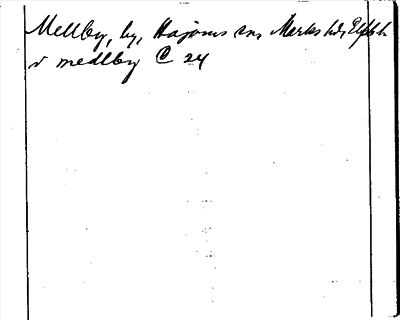 Mellby, by, Hajoms sn, Marks hd, Elfsb.
v medlby C 24